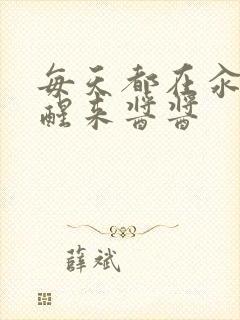 每天都在汆
醒来酱酱
薛斌